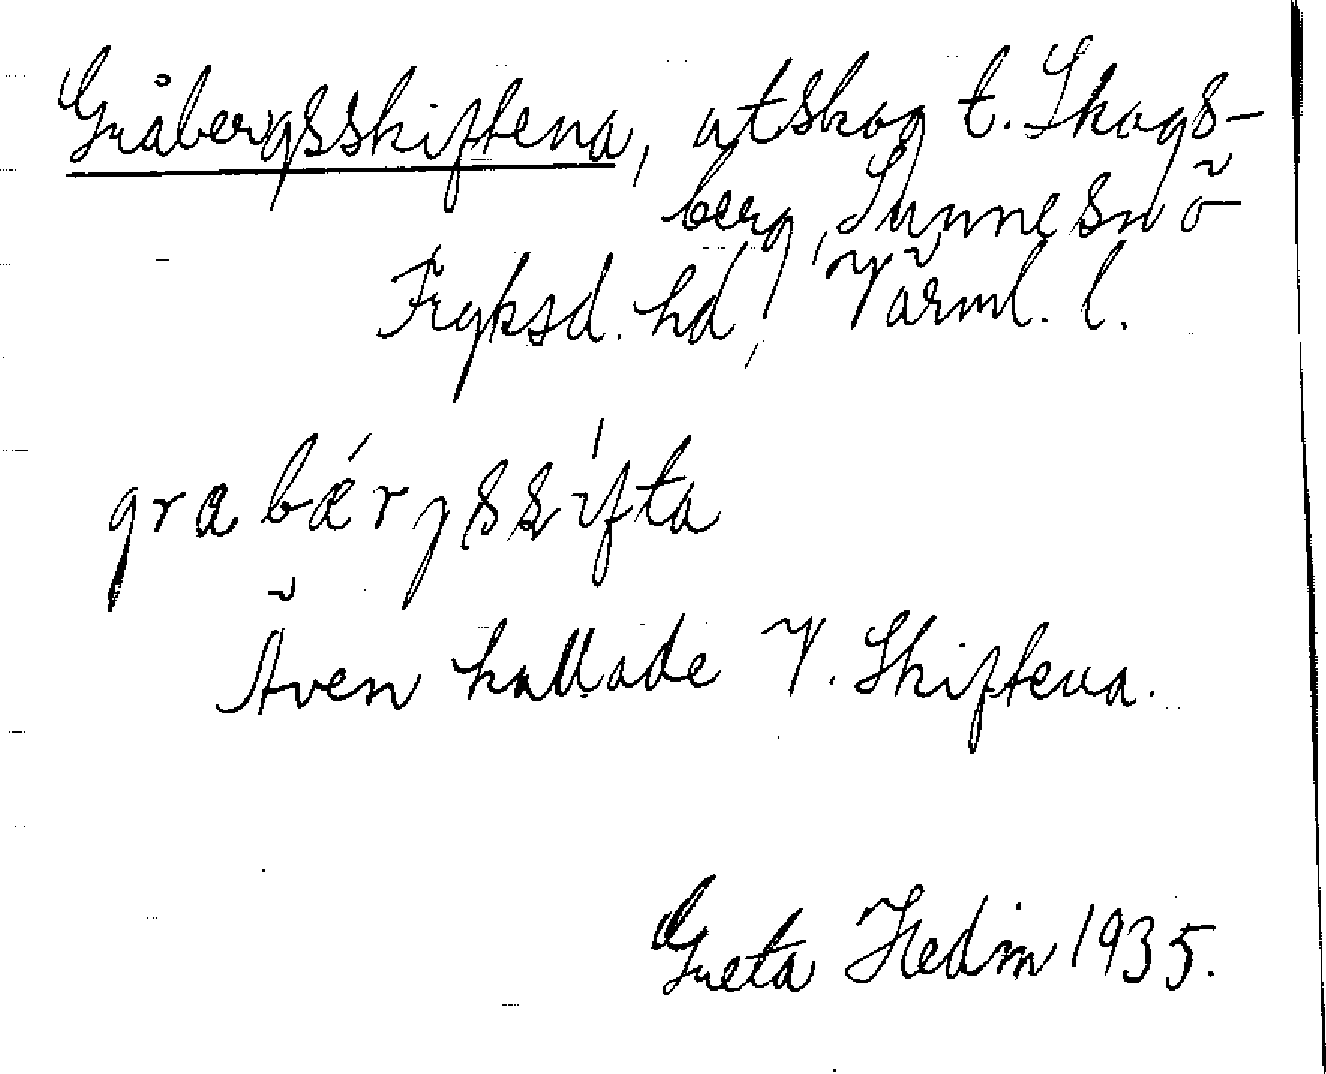 Gråbergsskiftena, utskog t. Skogs-
berg, Sunne sn
Fryksd. hd, Värml. l.
Även kallade V. Skiftena.
Greta Hedin 1935.